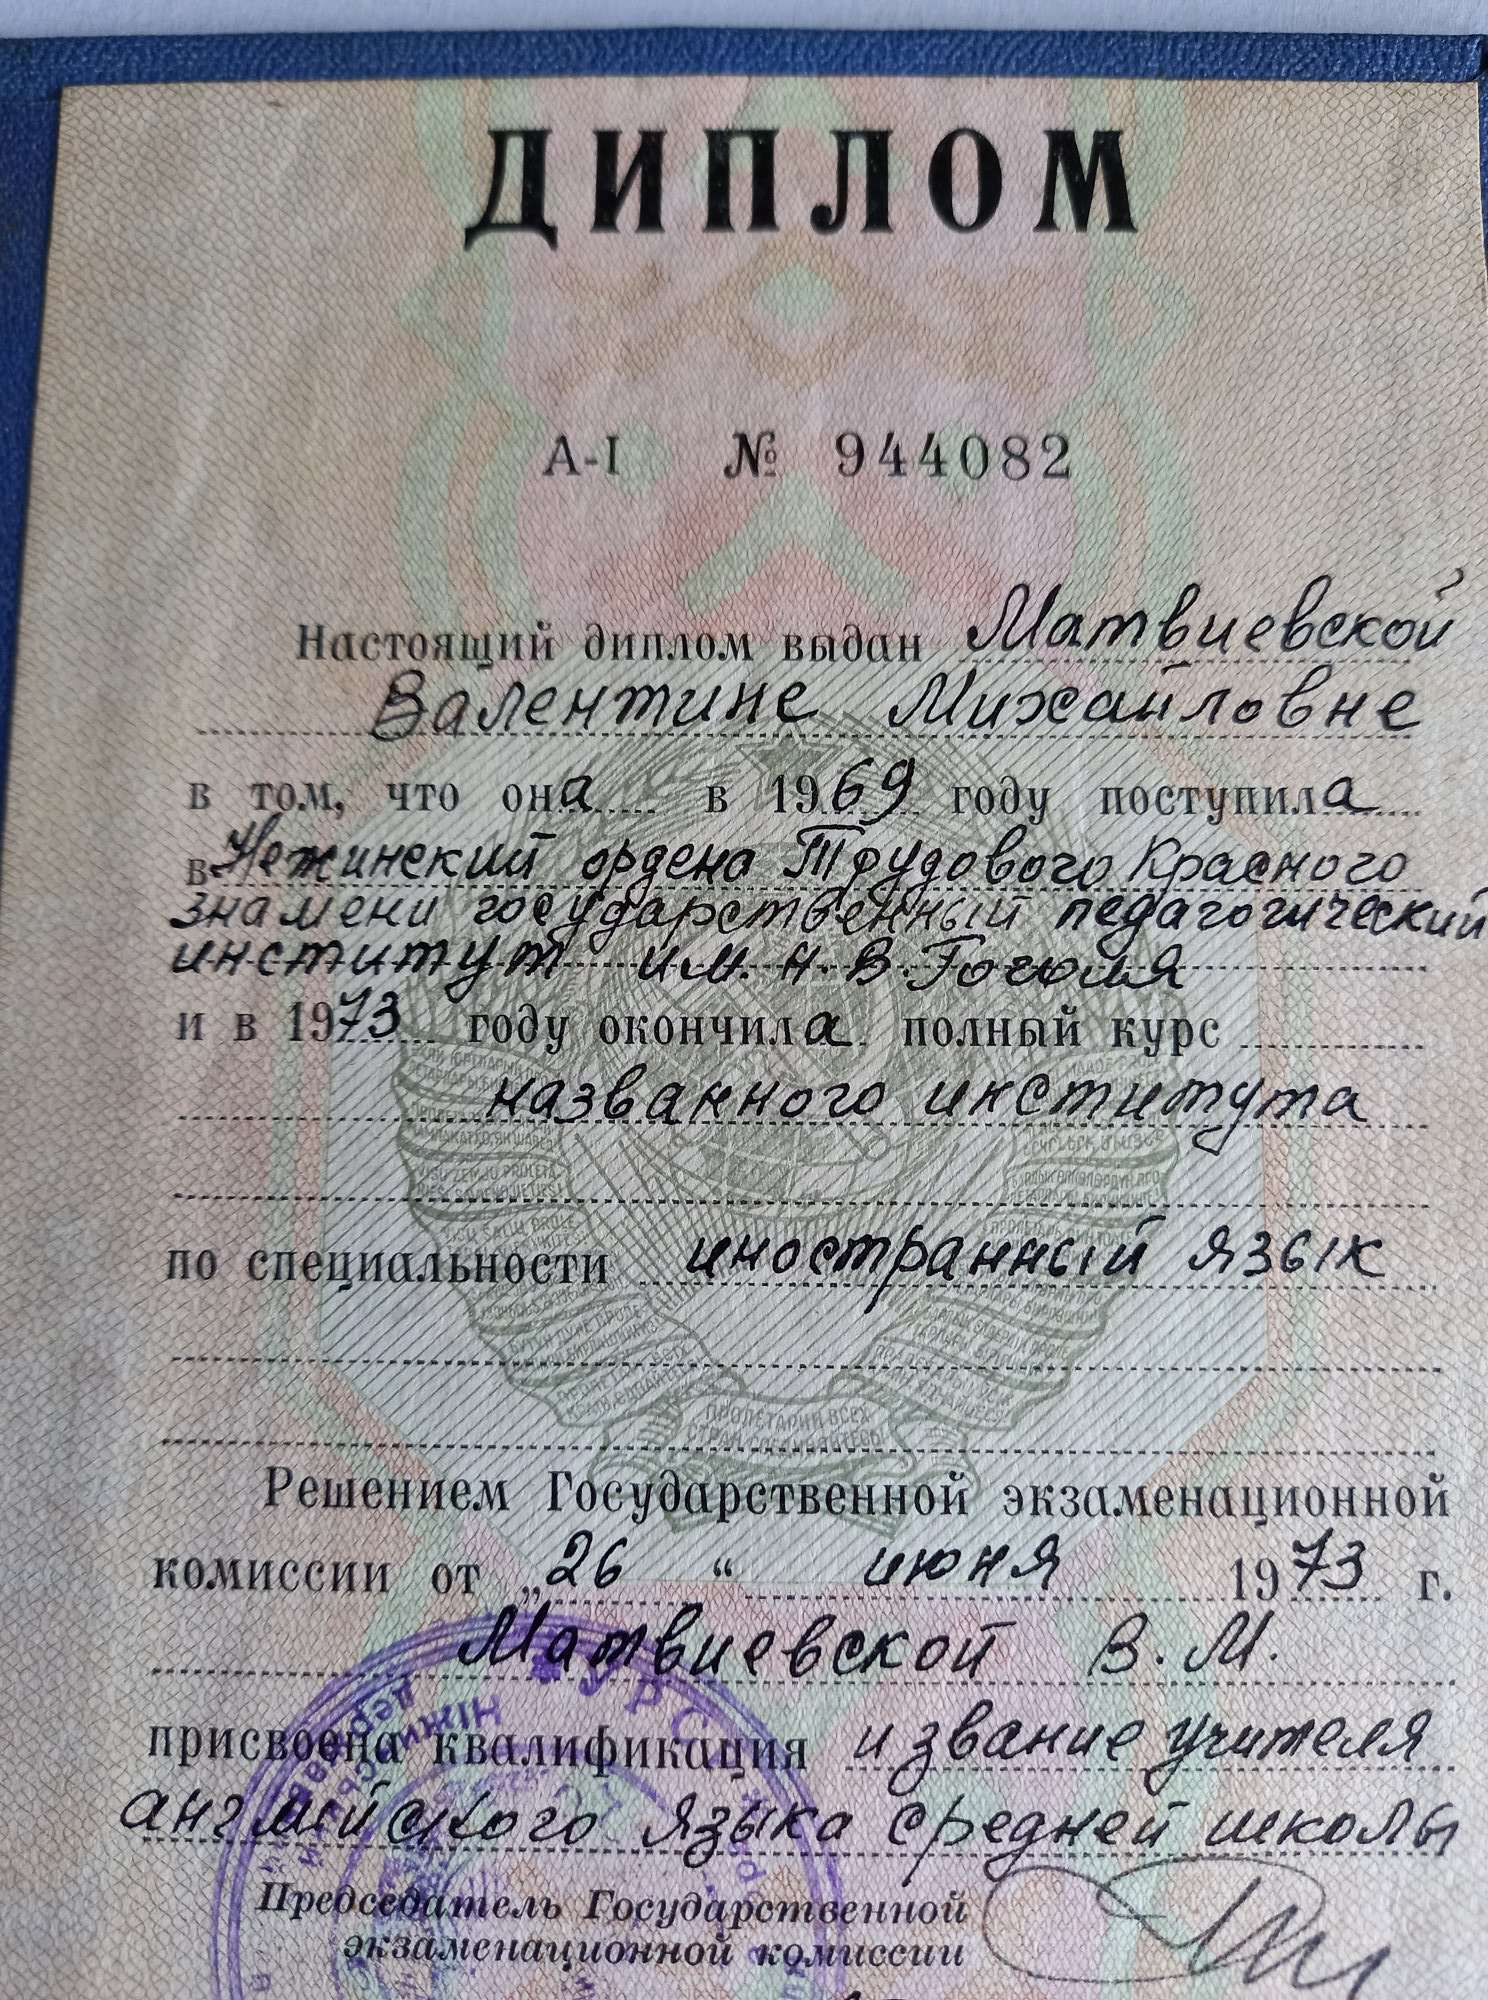 ДИПЛОМ
А-I № 944082
Настоящий диплом выдан Матвиевской
Валентине Михайловне
в том, что она в 1969 году поступила
в Нежинский ордена Трудового Красного
знамени государственный педагогический
институт им. Н. В. Гоголя
и в 1973 году окончила полный курс
названного института
по специальности иностранный язык
ПРОЛЕТАРИИ ВСЕХ
СТРАН СОЕДИНЯЙТЕСЬ!
Решением Государственной экзаменационной
комиссии от „26“ июня 1973 г.
Матвиевской В. М.
присвоена квалификация и звание учителя
английского языка средней школы
Председатель Государственной
экзаменационной комиссии